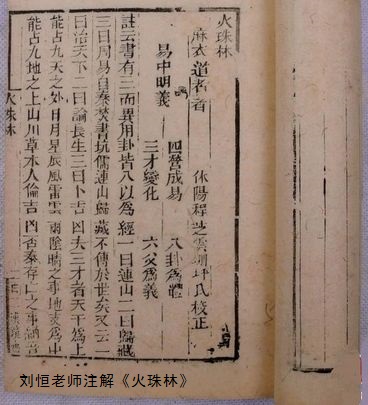 火珠林
麻衣道者著 休陽程芝雲潤坪氏校正
易中明義 四營成易 八卦為體
三才變化 六爻為義
註云書有三而異用卦皆八以為經一曰連山二曰歸藏
三曰周易自秦焚書坑儒連山歸藏不傳於世矣又云一
曰治天下二曰論長生三曰卜吉凶夫三才者天為上
能占九天之外日月星辰風雷雲雨陰晴之事地為中
能占九地之上山川草木人倫吉凶否泰存亡之事
火珠林
刘恒老师注解《火珠林》